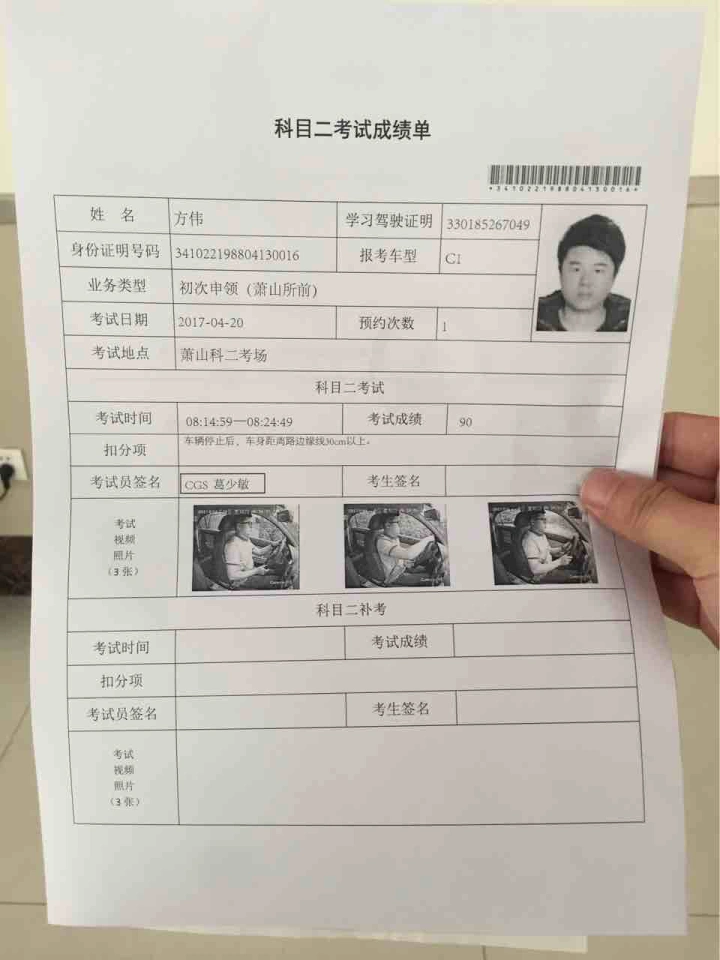 科目二考试成绩单
*341022198804130016*
姓 名 方伟 学习驾驶证明 330185267049
身份证明号码 341022198804130016 报考车型 C1
业务类型 初次申领（萧山所前）
考试日期 2017-04-20 预约次数 1
考试地点 萧山科二考场
科目二考试
考试时间 08:14:59—08:24:49 考试成绩 90
扣分项 车辆停止后，车身距离路边缘线30cm以上。
考试员签名 CGS 葛少敏 考生签名
考试
视频
照片
（3 张）
科目二补考
考试时间 考试成绩
扣分项
考试员签名 考生签名
考试
视频
照片
（3 张）